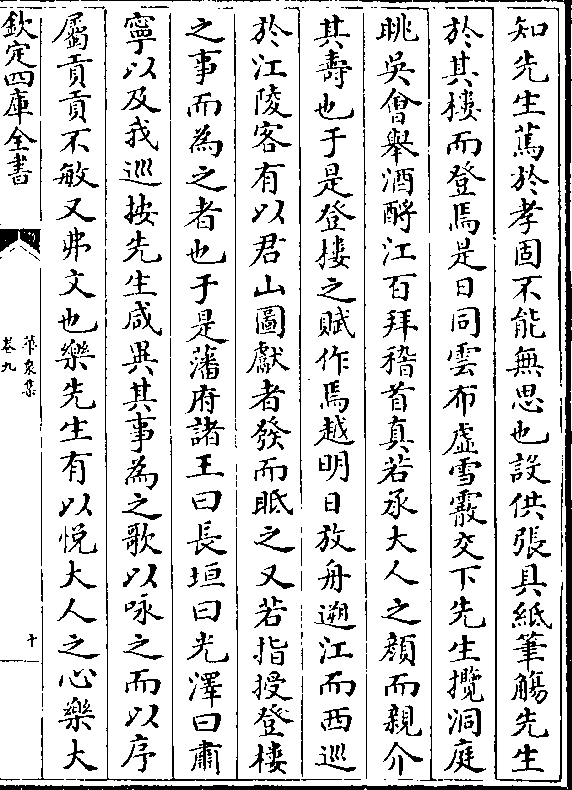 知先生篤於孝固不能無思也設供張具紙筆觴先生
於其樓而登焉是日同雲布虚雪霰交下先生攬洞庭
眺吳會舉酒酹江百拜稽首真若承大人之顔而親介
其壽也于是登樓之賦作焉越明日放舟遡江而西巡
於江陵客有以君山圖獻者發而眎之又若指授登樓
之事而為之者也于是藩府諸王曰長垣曰光澤曰肅
寧以及我巡按先生咸異其事為之歌以咏之而以序
屬貢貢不敏又弗文也樂先生有以悦大人之心樂大
欽定四庫全書
集
卷九
十